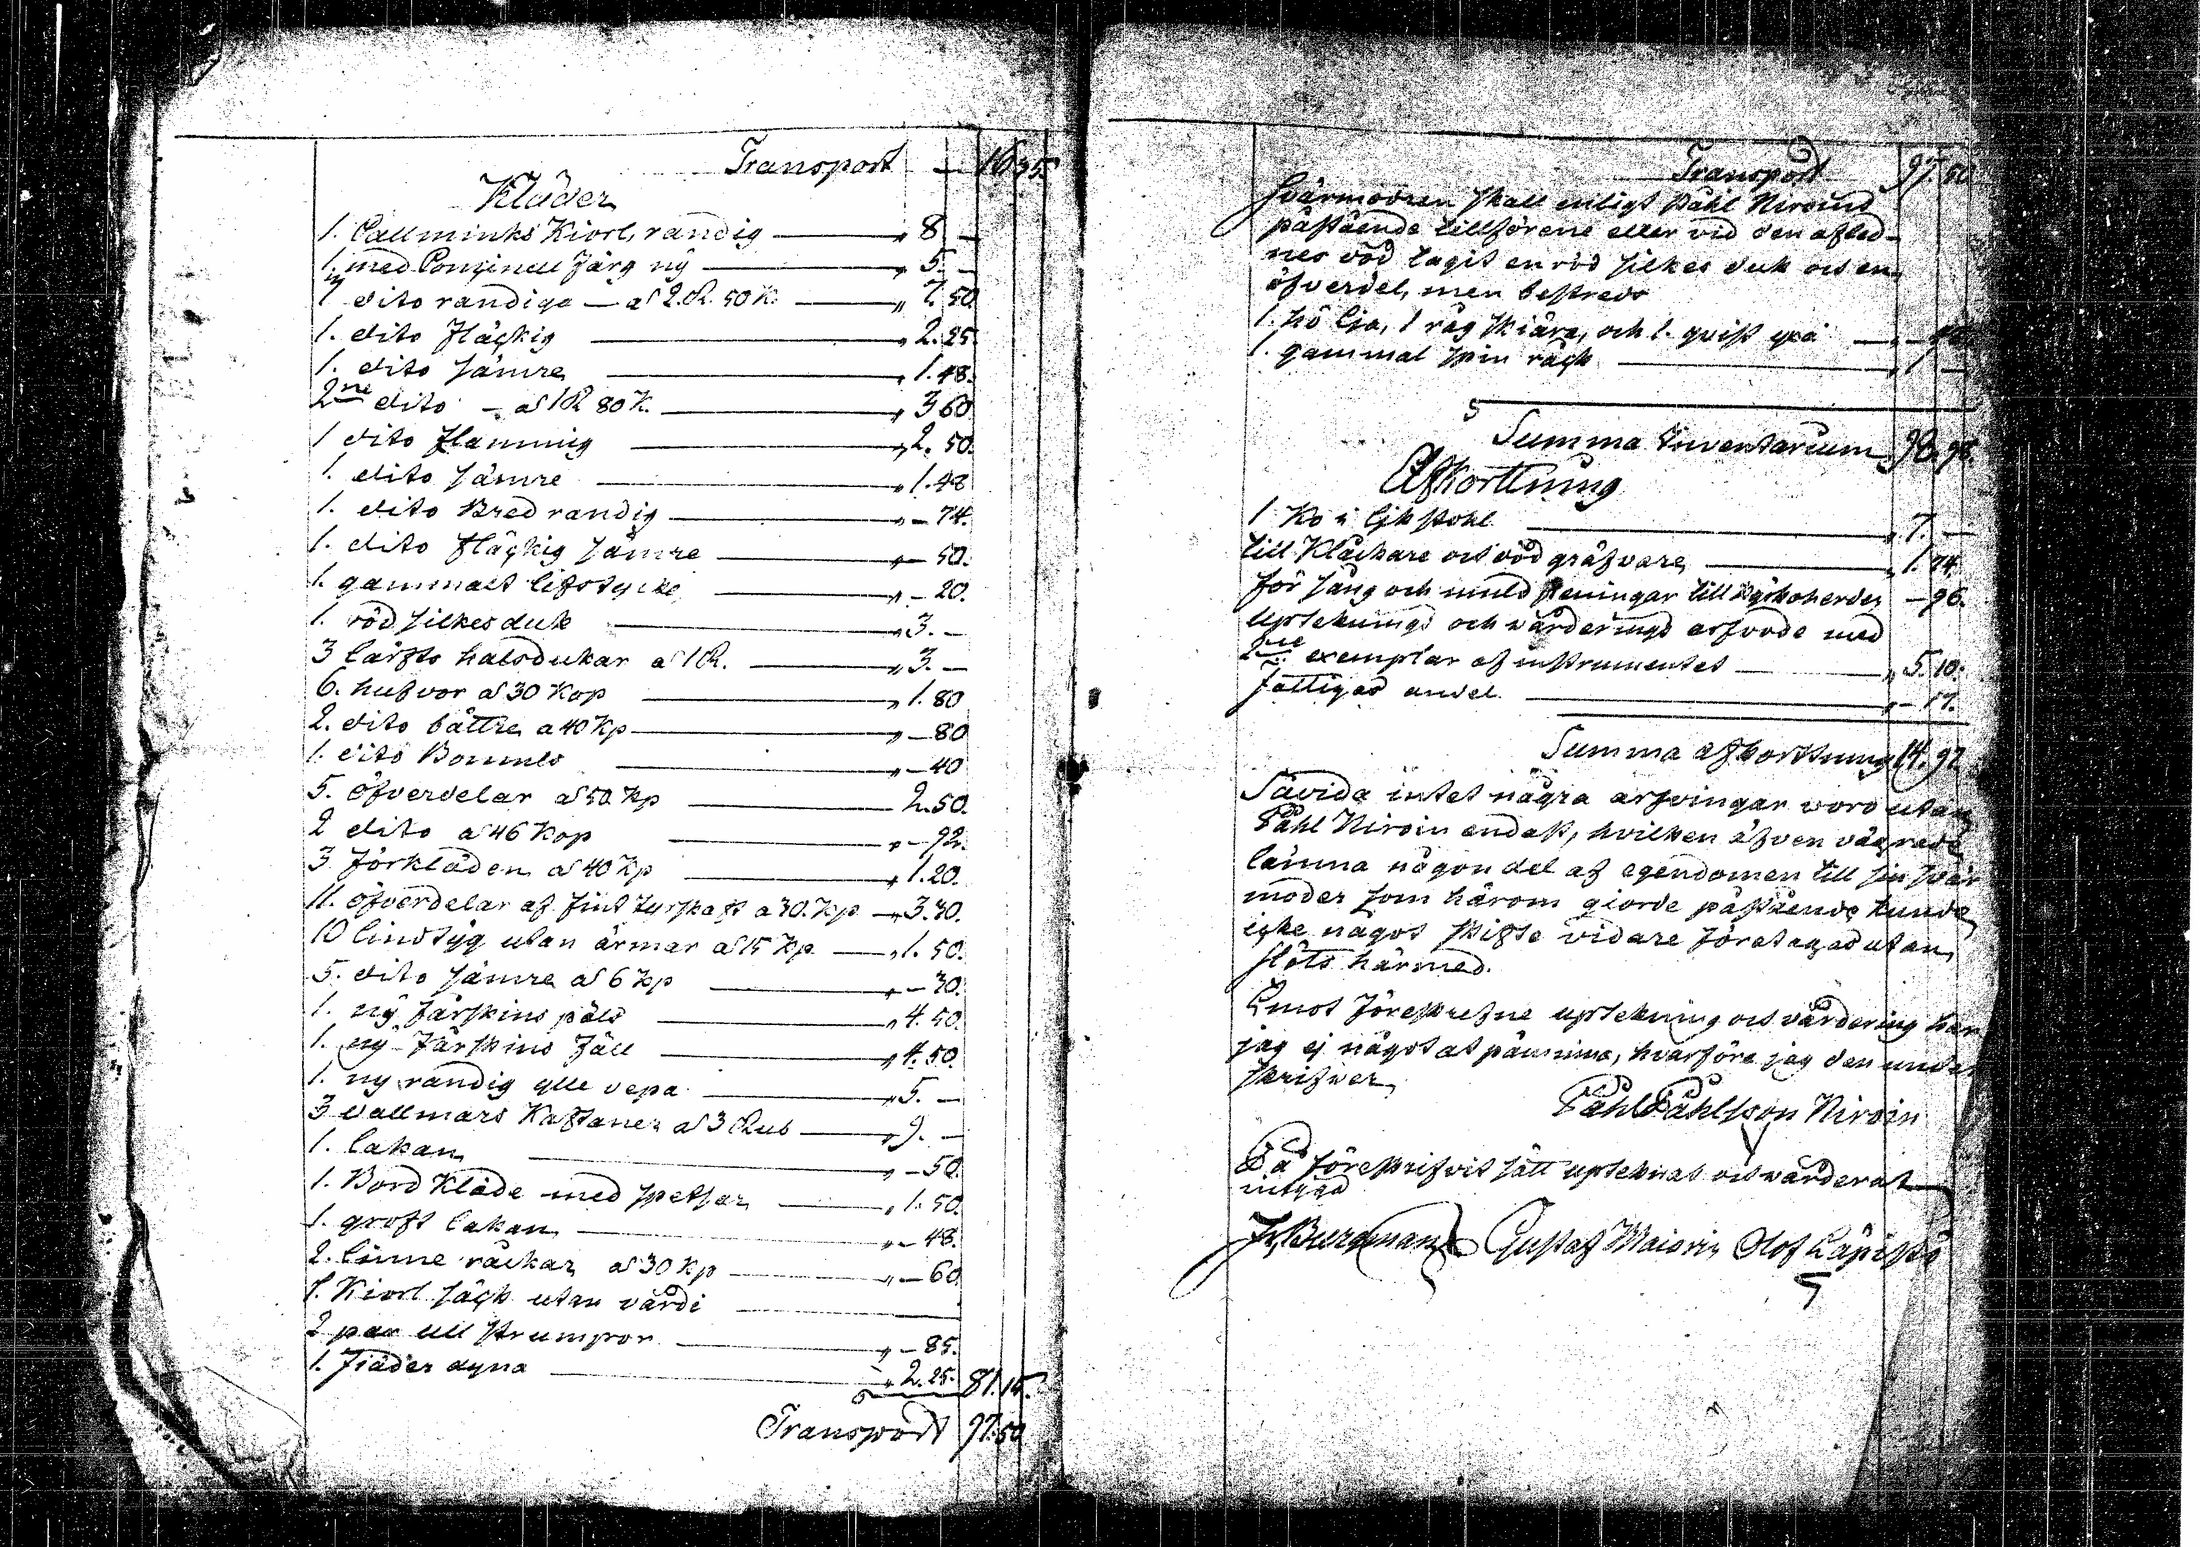 Transport — 16 35.
Kläder
1. Callminks Kiorl, randig — " 8. —
1. med Ponginell färg ny — " 5. —
3 dito randiga — a 2. R. 50 K. — " 7. 50
1. dito fläckig — " 2. 25
1. dito sämre — " 1. 48.
2ne dito — a 1 R 80 K. — " 3 60
1 dito flammig — " 2. 50.
1. dito sämre — " 1. 48
1. dito Bred randig — " — 74.
1. dito fläckig sämre — " — 50.
1. gammalt lifstycke — " — 20.
1. röd silkesduk — " 3. —
3 lärfts halsdukar a 1 R. — " 3. —
6. hufvor a 30 Kop — " 1. 80
2. dito bättre a 40 Kp — " — 80
1. dito Bomuls — " — 40
5. öfverdelar a 50 Kp — 2. 50.
2 dito a 46 Kop — " — 92.
3 Förkläden a 40 Kp — " 1. 20.
11. öfverdelar af fint tyrskaft a 30. Kp — " 3. 30.
10 lindtyg utan ärmar a 15 Kp — " 1. 50.
5. dito sämre a 6 Kp — " — 30.
1. ny fårskins päls — " 4. 50.
1. ny fårskins fäll — " 4. 50.
1. ny randig ylle vepa — " 5. —
3 vallmars Kaftaner a 3 Rub — " 9. —
1. lakan — " — 50.
1. Bord Kläde med spetsar — " 1. 50.
1. groft lakan — " — 48.
2. linne räckar a 30 Kp — " — 60
1. Kiorl säck utan värdi —
2 par ull strumpor — " — 85.
1. Fiäder dyna — " 2. 25. 81. 15.
Transport 97. 50
Transport 97. 50
Svärmodren skall enligt Påhl Niroins
påstående tillförene eller vid den afled-
nes död tagit en röd silkes duk och en
öfverdel, men bestreds
1. hö lja, 1 råg skiära, och 1. quist yxa —
1. gammal spin råck — " 1 —
Summa Inventarium 98. 98.
Afkorttning
1 Ko i likstohl — " 7. —
till Kläckare och död gräfvare — " 1. 74.
för sång och mull peningar till Kyrkoherden — 96.
uptecknings och värderings arfvode med
2ne exemplar af instrumentet — " 5. 10.
Fattigas andel — " — 17.
Summa afkorttning 14. 97
Såvida intet några arfvingar voro utan
Påhl Niroin endast, hvilken äfven vägrade
lämna någon del af egendomen till sin svär
moder som härom giorde påstående kunde
icke något skifte vidare företagas utan
slöts härmed.
Emot föreskrefne uptekning och värdering har
jag ej något at påminna, hvarföre jag den under
skrifver
Påhl Påhlsson Niroin
På föreskrifvit sätt upteknat och värderat
intygad
Bergman Gustaf Maioin Olof Läpistö